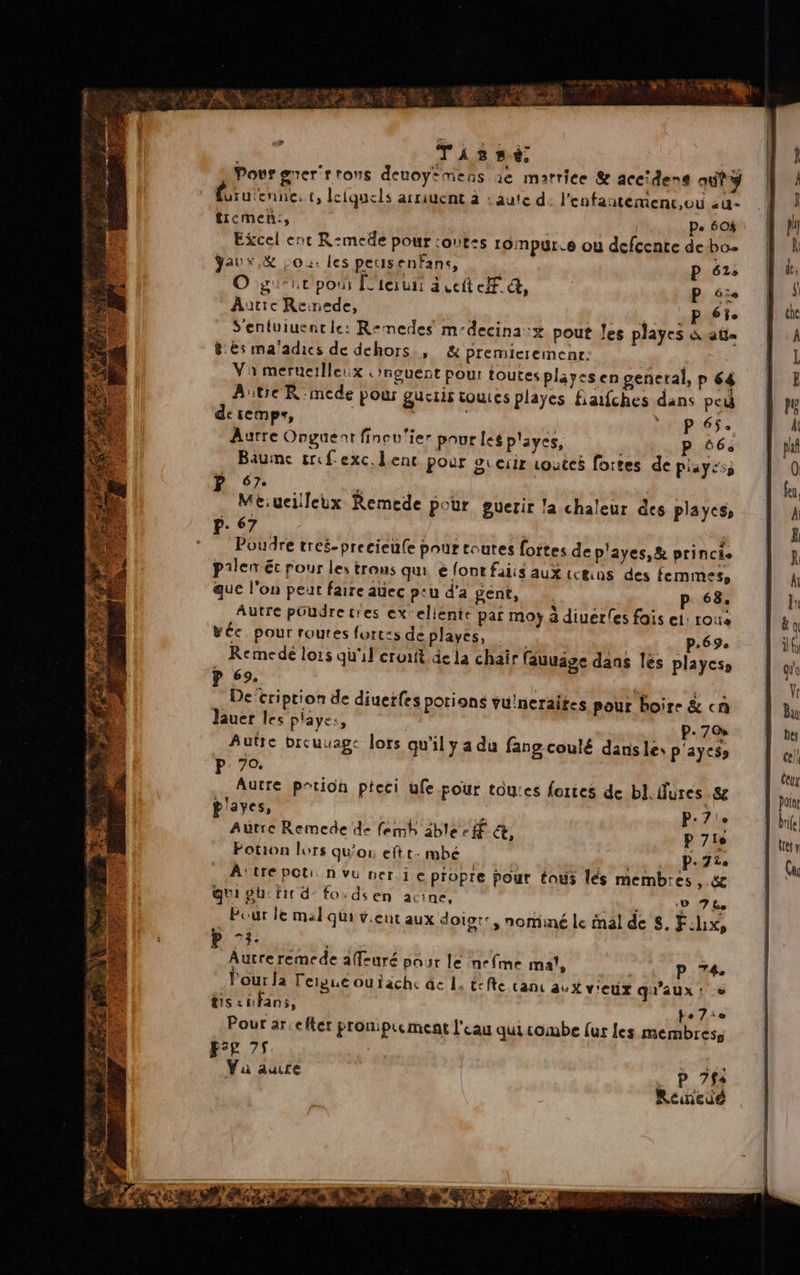 TABLE.
Pour guerir tous deuoyemens de matrice & accidens qui y
suruiennent, lesquels arriuent à cause de l'enfantement, ou au-
trement, p. 60
Excellent Remede pour toutes rompures ou descente de bo-
yaux, & pour les petits enfans, p 62.
Onguent pour seruir à cest effect, p
Autre Remede, p 63.
S'ensuiuent les Remedes medecinaux pour les playes & au-
tres maladies de dehors, & premierement:
Vn merueilleux onguent pour toutes playes en general, p 64
Autre Remede pour guerir toutes playes fraisches dans peu
de temps, p 65.
Autre Onguent singulier pour les playes, p 66.
Baume tres-excellent pour guerir toutes sortes de playes,
p 67.
Merueilleux Remede pour guerir la chaleur des playes,
p. 67
Poudre tres-precieuse pour toutes sortes de playes, & princi-
palement pour les trous qui se font faits aux tetins des femmes,
que l'on peut faire auec peu d'argent, p. 68.
Autre poudre tres excellente par moy à diuerses fois esprou-
uée pour toutes sortes de playes, p.69.
Remede lors qu'il croist de la chair sauuage dans les playes,
p 69.
Description de diuerses potions vulneraires pour boire & en
lauer les playes, p. 70.
Autre breuuage lors qu'il y a du sang coulé dans les playes,
p. 70.
Autre potion precieuse pour toutes sortes de blessures &
playes, p. 71.
Autre Remede de semblable effect, p 71.
Potion lors qu'on est tombé p. 72.
Autre potion vulneraire propre pour tous les membres, &
qui guerit du fonds en racine, p 72.
Pour le mal qui vient aux doigts, nommé le mal de S. Felix,
p 73.
Autre remede asseuré pour le mesme mal, p 74.
Pour la Teigne ou tache de la teste, tant aux vieux qu'aux pe-
tis enfans, p. 74.
Pour arrester promptement l'eau qui tombe sur les membres,
pag 75.
Vn autre p 75.
Remede